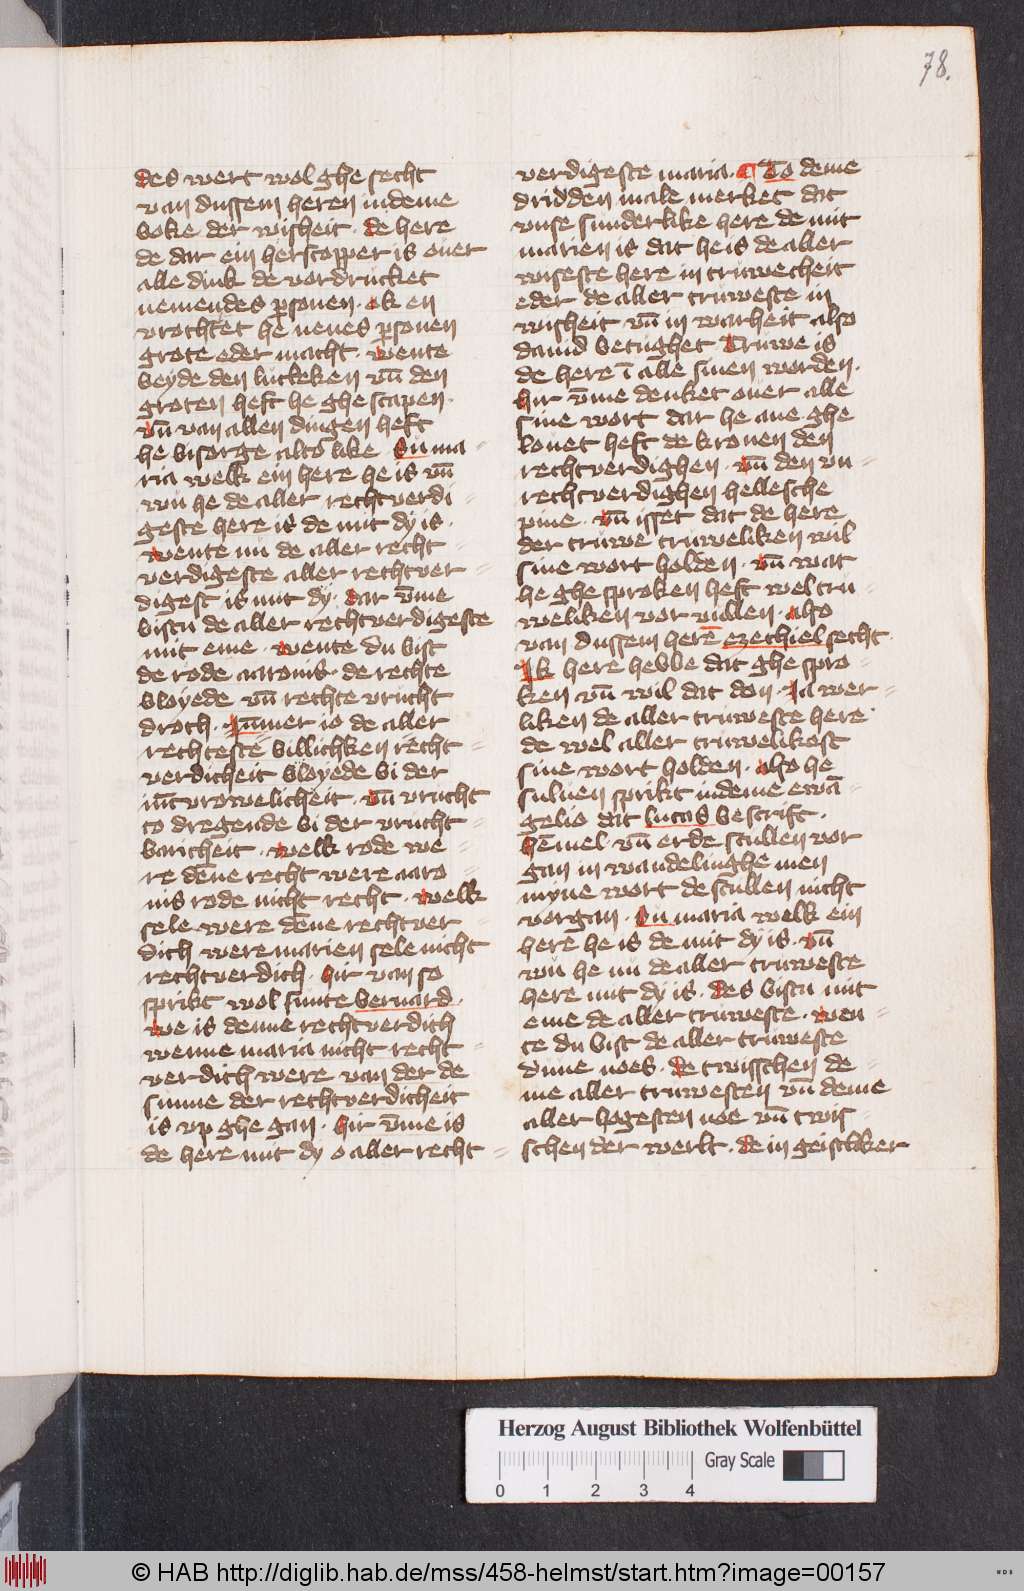 78.
des wert wol ghe secht
van dussem heren indeme
boke der wisheit · de here
de dar ein herscopper is ouer
alle dink de vordrucket
nemendes ꝑsonen · ok en
vrochtet he nenes ꝑsonen
grote eder macht · wente
beyde den lutteken vn̄ den
groten heft he ghe scapen ·
vn̄ van allen dingen heft
he bisorge alto like Su ma
ria welk ein here he is vn̄
wu he de aller rechtverdi
geste here is de mit dy is ·
wente nu de aller recht
verdigeste aller rechtver
digest is mit dy · dar v̄me
bistu de aller rechtverdigeste
mit eme · wente du bist
de rode aaronis · de rechte
bloyede vn̄ rechte vrucht
droch · Jūmer io de aller
rechteste billichken recht
verdicheit bloyede bi der
iūcvrowelicheit · vn̄ vrucht
to dregende bi der vrucht
baricheit · welk rode we
re dēne recht were aaro
nis rode nicht recht · welk
sele were dēne rechtver
dich were marien sele nicht
rechtverdich · hir van so
sprikt wol sunte bernard ·
we is denne rechtverdich
wenne maria nicht recht
verdich were van der de
sunne der rechtverdicheit
is vp ghe gan · hir v̄me is
de here mit dy o aller recht
verdigeste maria · To deme
dridden male merket dat
vnse sunderlike here de mit
marien is dat he is de aller
wiseste here in truwecheit
eder de aller truweste in
wisheit vn̄ in warheit also
dauid betughet Truwe is
de here ī alle sinen worden ·
hir v̄me denket ouer alle
sine wort dar he ane ghe
louet heft de kronen den
rechtverdighen · vn̄ den vn
rechtverdighen hellesche
pine · vn̄ isset dat de here
der truwe truweliken wil
sine wort holden · vn̄ wat
he ghe sproken heft wel tru
weliken vor vullen · also
van dussem herē ezechiel secht
Ik here hebbe dat ghe spro
ken vn̄ wil dat don · Ja wer
liken de aller truweste here
de wel aller truwelikost
sine wort holden · also he
suluen sprikt indeme ewā
gelio dat lucas bescrift ·
hēmel vn̄ erde scullen vor
gan in wandelinghe men
myne wort de scullen nicht
vorgan · Su maria welk ein
here he is de mit dy is · vn̄
wu he nu de aller truweste
here mit dy is · des bistu mit
eme de aller truweste · wen
te du bist de aller truweste
duue noes · de twisschen de
me aller truwesten vn̄ deme
aller hogesten noe vn̄ twis
schen der werlt · de in geistliker
Herzog August Bibliothek Wolfenbüttel
Gray Scale
0 1 2 3 4
© HAB http://diglib.hab.de/mss/458-helmst/start.htm?image=00157